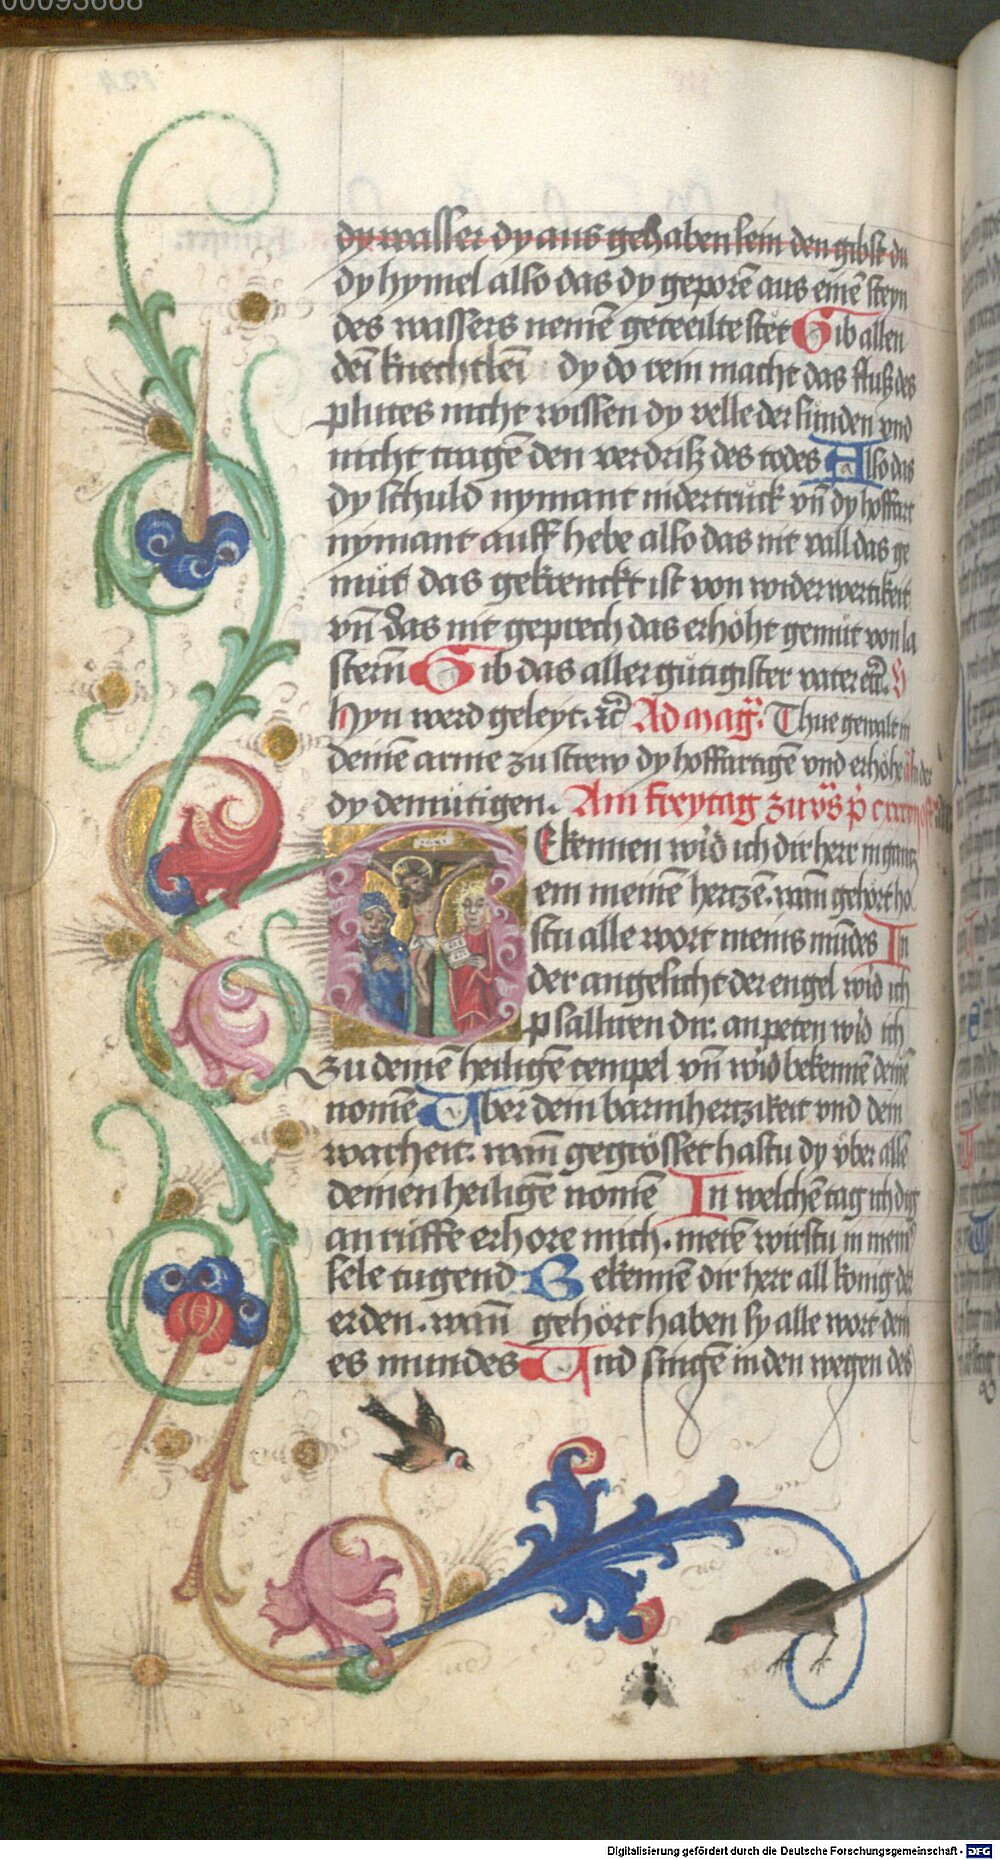 00093668
dy wasser dy aus gehaben sein den gibst du
dy hymel also das dy geporē aus einē steyn
des wassers nemē geteeilte stet Gib allen
dein knechtlein dy do rein macht das fluß des
plutes nicht wissen dy velle der sünden vnd
nicht tragē den verdriß des todes Also das
dy schuld nymant nidertruck vn̄ dy hoffart
nymant auff hebe also das nit vall das ge
müt das gekrenckt ist von widerwertikeit
vn̄ das nit geprech das erhöht gemüt von la
stern Gib das aller gütigister vater etc̄. V
hyn werd geleyt. etc̄ Ad mag. Thue gewalt in
deinē arme zu strew dy hoffartigē vnd erhöhe
dy demütigen. Am freytag zu vs p̄
BEkennen wid ich dir herr in gantz
em meinē hertzē. wan̄ gehört ha
stu alle wort meins mūdes In
der angesicht der engel wid ich
psalliren dir: an peten wid ich
zu deinē heiligē tempel vn̄ wid bekennē deinē
nomē Vber dein barmhertzikeit vnd dein
warheit. wan̄ gegrösset hastu dy vber allē
deinen heiligē nomē In welchē tag ich dich
an rüffe erhore mich. merē wirstu in meinē
sele tugend Bekennē dir herr all könig der
erden. wan̄ gehört haben sy alle wort dein
es mundes Vnd singē in den wegen des
Digitalisierung gefördert durch die Deutsche Forschungsgemeinschaft - DFG